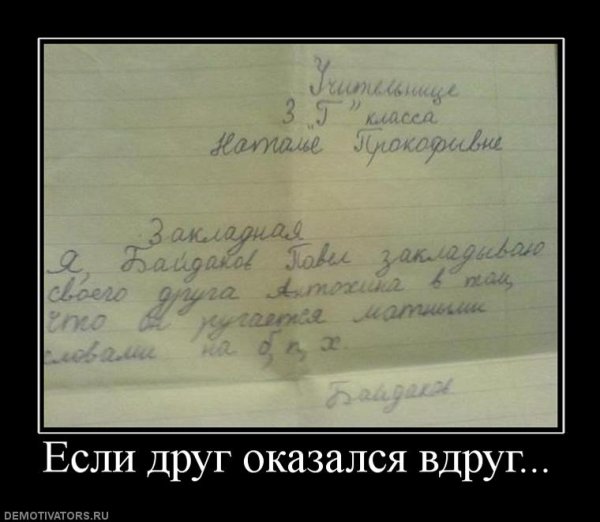 Учительнице
3 "Г" класса
Наталье Прокофивне
Закладная
Я, Байдаков Павел закладываю
своего друга Антохина в том,
что он ругается матными
словами на б, п, х.
Байдаков
Если друг оказался вдруг...
DEMOTIVATORS.RU